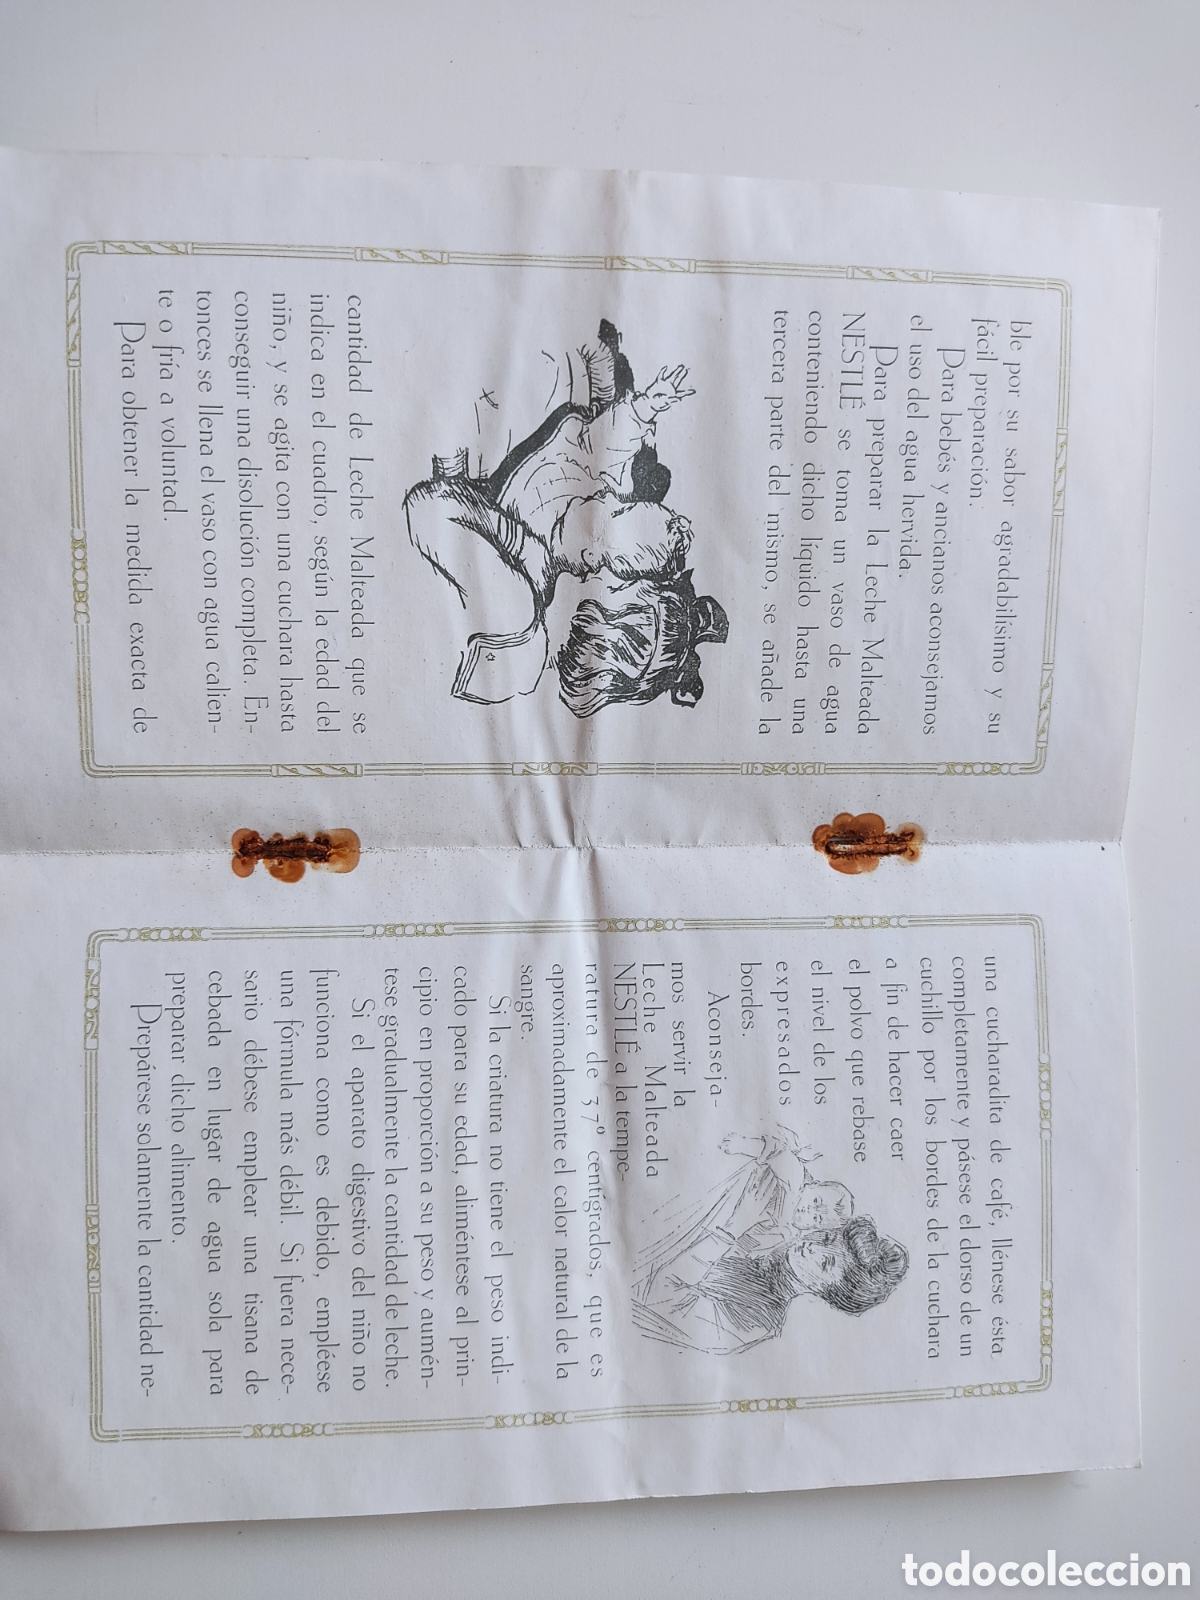 ble por su sabor agradabilísimo y su
fácil preparación.
Para bebés y ancianos aconsejamos
el uso del agua hervida.
Para preparar la Leche Malteada
NESTLÉ se toma un vaso de agua
conteniendo dicho líquido hasta una
tercera parte del mismo, se añade la
cantidad de Leche Malteada que se
indica en el cuadro, según la edad del
niño, y se agita con una cuchara hasta
conseguir una disolución completa. En-
tonces se llena el vaso con agua calien-
te o fría a voluntad.
Para obtener la medida exacta de
una cucharadita de café, llénese ésta
completamente y pásese el dorso de un
cuchillo por los bordes de la cuchara
a fin de hacer caer
el polvo que rebase
el nivel de los
expresados
bordes.
Aconseja-
mos servir la
Leche Malteada
NESTLÉ a la tempe-
ratura de 37º centígrados, que es
aproximadamente el calor natural de la
sangre.
Si la criatura no tiene el peso indi-
cado para su edad, aliméntese al prin-
cipio en proporción a su peso y aumén-
tese gradualmente la cantidad de leche.
Si el aparato digestivo del niño no
funciona como es debido, empléese
una fórmula más débil. Si fuera nece-
sario débese emplear una tisana de
cebada en lugar de agua sola para
preparar dicho alimento.
Prepárese solamente la cantidad ne-
todocoleccion